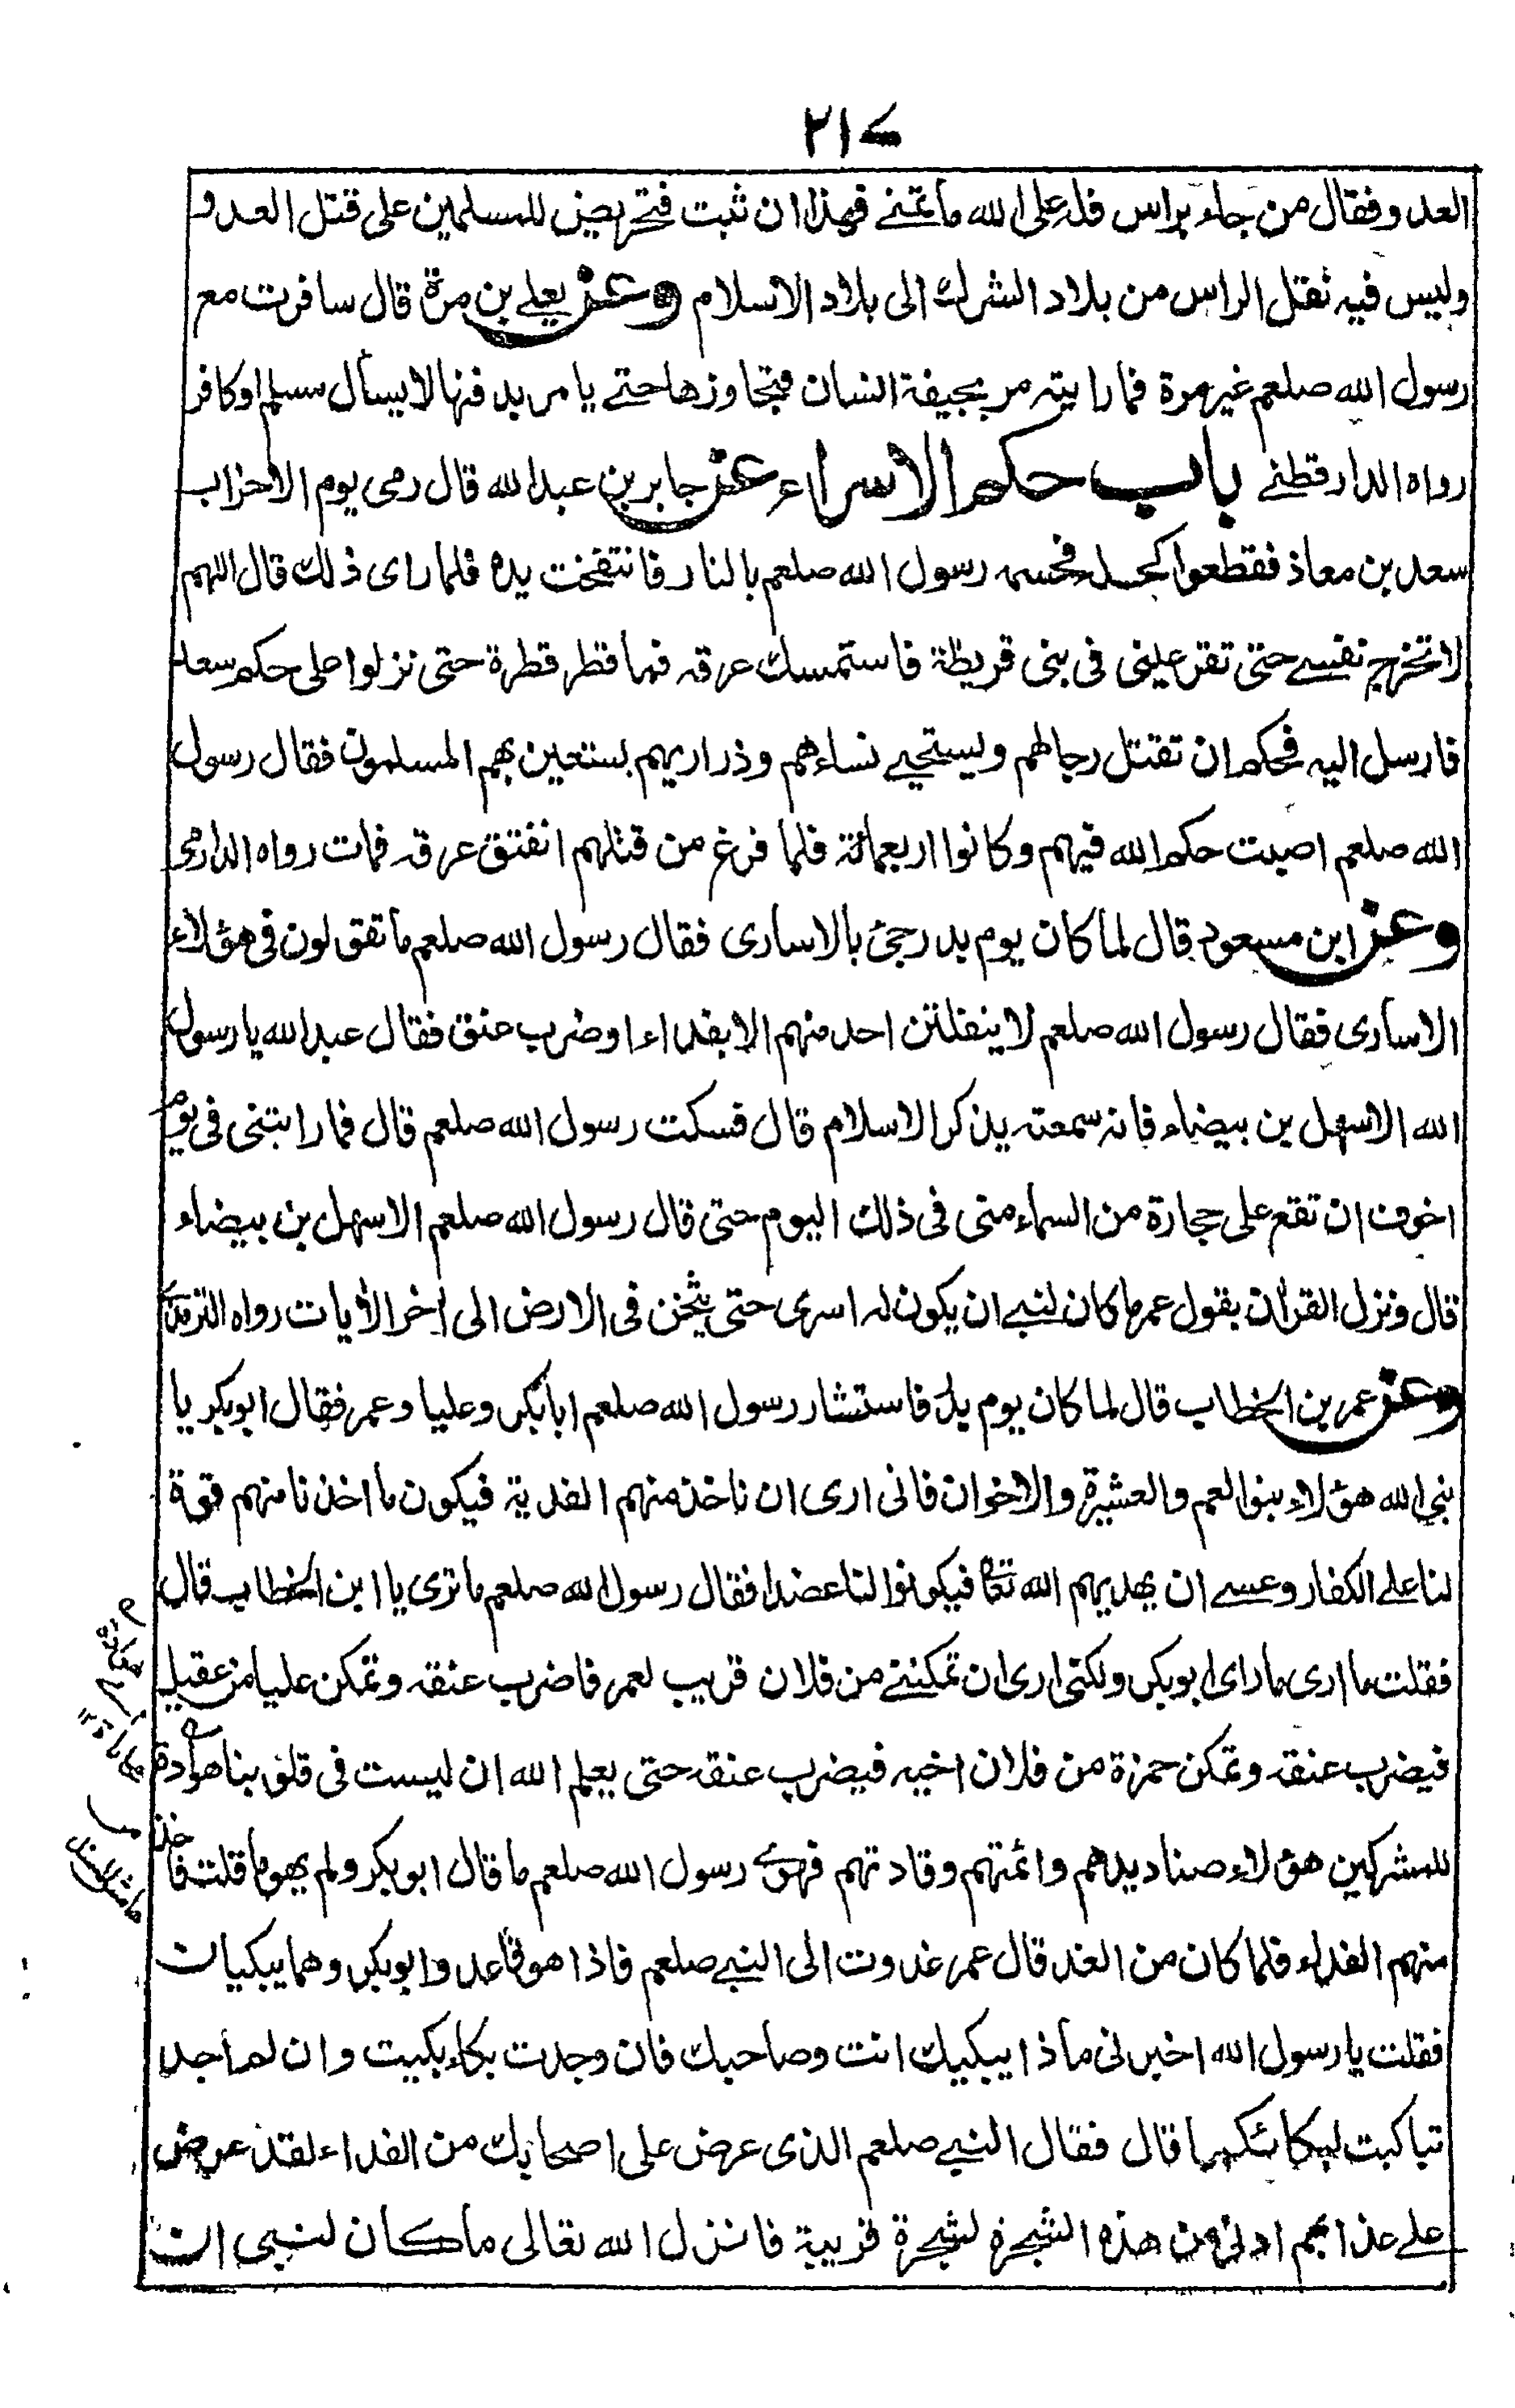 ٢١٧
العدو فقال من جاء براس فله على الله ما تمنے فهذا ان ثبت فتحريض للمسلمين على قتل العدو
وليس فيه نقل الراس من بلاد الشرك الى بلاد الاسلام وعن يعلے بن مرة قال سافرت مع
رسول الله صلعم غير مرة فما رايته مر بجيفة انسان فتجاوزها حتے يامر بدفنها لا يسأل مسلم او كافر
رواه الدارقطنے باب حكم الاسراء عن جابر بن عبد الله قال رمى يوم الاحزاب
سعد بن معاذ فقطعوا كحله فحسمه رسول الله صلعم بالنار فانتفخت يده فلما راى ذلك قال اللهم
لا تخرج نفسے حتى تقر عينى فى بنى قريظة فاستمسك عرقه فما قطر قطرة حتى نزلوا على حكم سعد
فارسل اليه فحكم ان تقتل رجالهم ويستحيے نساءهم وذراريهم يستعين بهم المسلمون فقال رسول
الله صلعم اصبت حكم الله فيهم وكانوا اربعمائة فلما فرغ من قتلهم انفتق عرقه فمات رواه الدارمى
وعن ابن مسعود قال لما كان يوم بدر جئ بالاسارى فقال رسول الله صلعم ما تقولون فى هؤلاء
الاسارى فقال رسول الله صلعم لا ينفلتن احد منهم الا بفداء او ضرب عنق فقال عبد الله يا رسول
الله الا سهل بن بيضاء فانه سمعته يذكر الاسلام قال فسكت رسول الله صلعم قال فما رايتنى فى يوم
اخوف ان تقع على حجارة من السماء منى فى ذلك اليوم حتى قال رسول الله صلعم الا سهل بن بيضاء
قال ونزل القرآن بقول عمر ما كان لنبے ان يكون له اسرى حتى يثخن فى الارض الى اخر الأيات رواه الترمذے
وعن عمر بن الخطاب قال لما كان يوم بدر فاستشار رسول الله صلعم ابا بكر وعليا وعمر فقال ابو بكر يا
نبى الله هؤلاء بنو العم والعشيرة والاخوان فانى ارى ان ناخذ منهم الفدية فيكون ما اخذنا منهم قوة
لنا على الكفار وعسے ان يهديهم الله تعا فيكونوا لنا عضدا فقال رسول الله صلعم ما ترى يا ابن الخطاب قال
فقلت ما ارى ما راى ابو بكر ولكنى ارى ان تمكننے من فلان قريب لعمر فاضرب عنقه وتمكن عليا من عقيل
فيضرب عنقه وتمكن حمزة من فلان اخيه فيضرب عنقه حتى يعلم الله ان ليست فى قلوبنا هوادة
للمشركين هؤلاء صناديدهم وائمتهم وقادتهم فهوے رسول الله صلعم ما قال ابو بكر ولم يهو ما قلت فاخذ
منهم الفداء فلما كان من الغد قال عمر غدوت الى النبے صلعم فاذا هو قاعد وابو بكر وهما يبكيان
فقلت يا رسول الله اخبرنى ماذا يبكيك انت وصاحبك فان وجدت بكاء بكيت وان لم اجد
تباكيت لبكائكما قال فقال النبے صلعم الذى عرض على اصحابك من الفداء لقد عرض
علے عذابهم ادنى من هذه الشجرة لشجرة قريبة فانزل الله تعالى ما كان لنبى ان